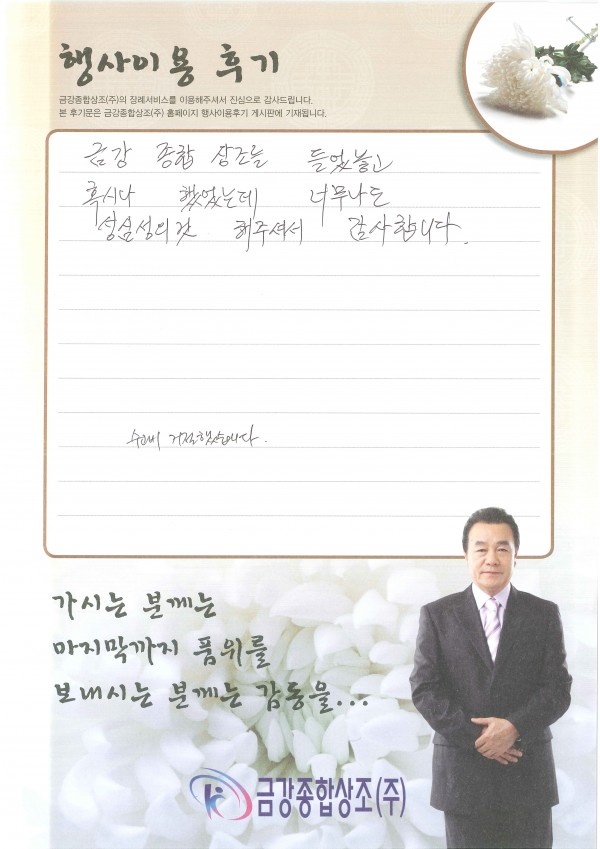 행사이용 후기
금강종합상조(주)의 장례서비스를 이용해주셔서 진심으로 감사드립니다.
본 후기문은 금강종합상조(주) 홈페이지 행사이용후기 게시판에 기재됩니다.
금강 종합 상조를 들었놓고
혹시나 했었는데 너무나도
성실성의것 해주셔서 감사합니다.
수고비 거절했습니다.
가시는 분께는
마지막까지 품위를
보내시는 분께는 감동을...
금강종합상조(주)